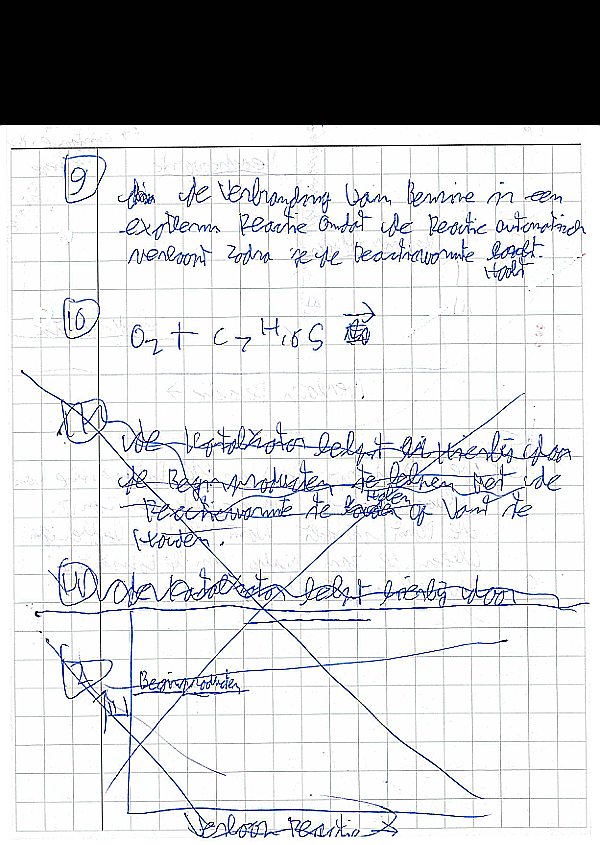 9
de Verbranding Van Benzine is een
exotherm Reactie omdat de Reactie automatisch
verloopt zodra ze de Reactiewarmte
Haalt
10
O2 + C7H16S →
11
de Katalysator helpt hierbij door
de Beginproducten te helpen met de
Reactiewarmte te
Halen of Vast te
Houden.
de Katalysator helpt hierbij door
Beginproducten
Verloop reactie →